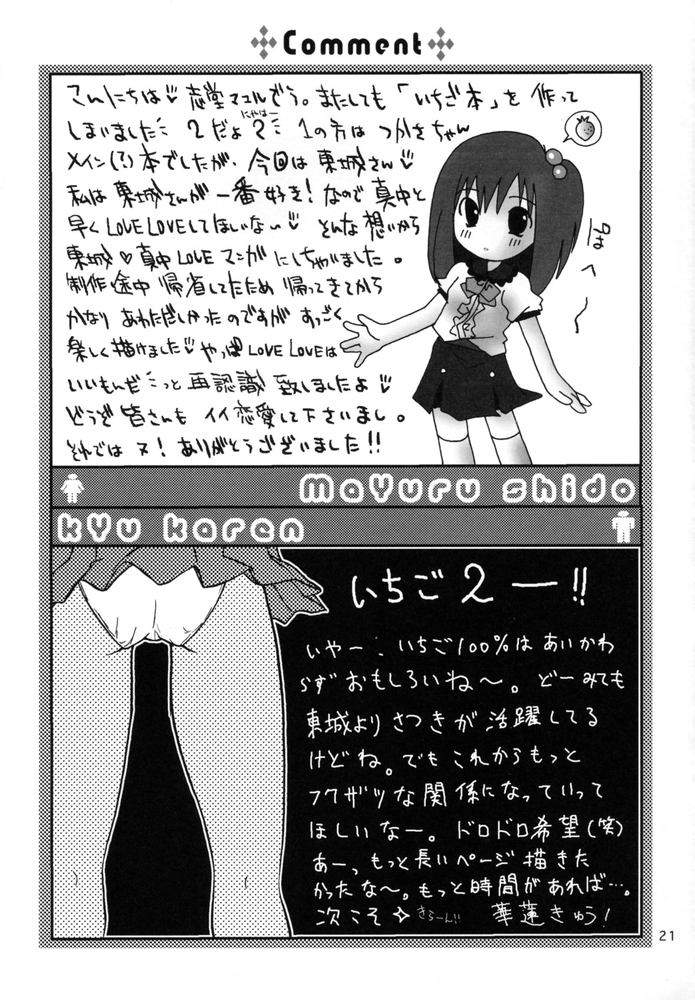 Comment
こんにちは♡ 志堂マユルでぅ。またしても「いちご本」を作って
しまいました 2だよ？ 1の方は つかさちゃん
にゃはー
メイン(?)本でしたが、今回は東城さん♡
私は東城さんが一番好き！なので真中と
早くLOVE LOVEしてほしい♡ そんな想いから
東城♡真中LOVEマンガにしちゃいました。
制作途中帰省してたため帰ってきてから
かなりあわただしかったのですがすっごく
楽しく描けました♡やっぱLOVE LOVEは
いいもんだっと再認識致しましたよ♡
どうぞ皆さんもイイ恋愛して下さいまし。
それではヌ！ありがとうございました!!
MaYuru shido
kYu karen
いちご2ー!!
いやー、いちご100%はあいかわ
らずおもしろいね〜。どーみても
東城よりさつきが活躍してる
けどね。でもこれからもっと
フクザツな関係になっていって
ほしいなー。ドロドロ希望(笑)
あーっもっと長いページ描きた
かったな〜。もっと時間があれば…。
次こそ✧きらーん!! 華蓮きゅう！
21